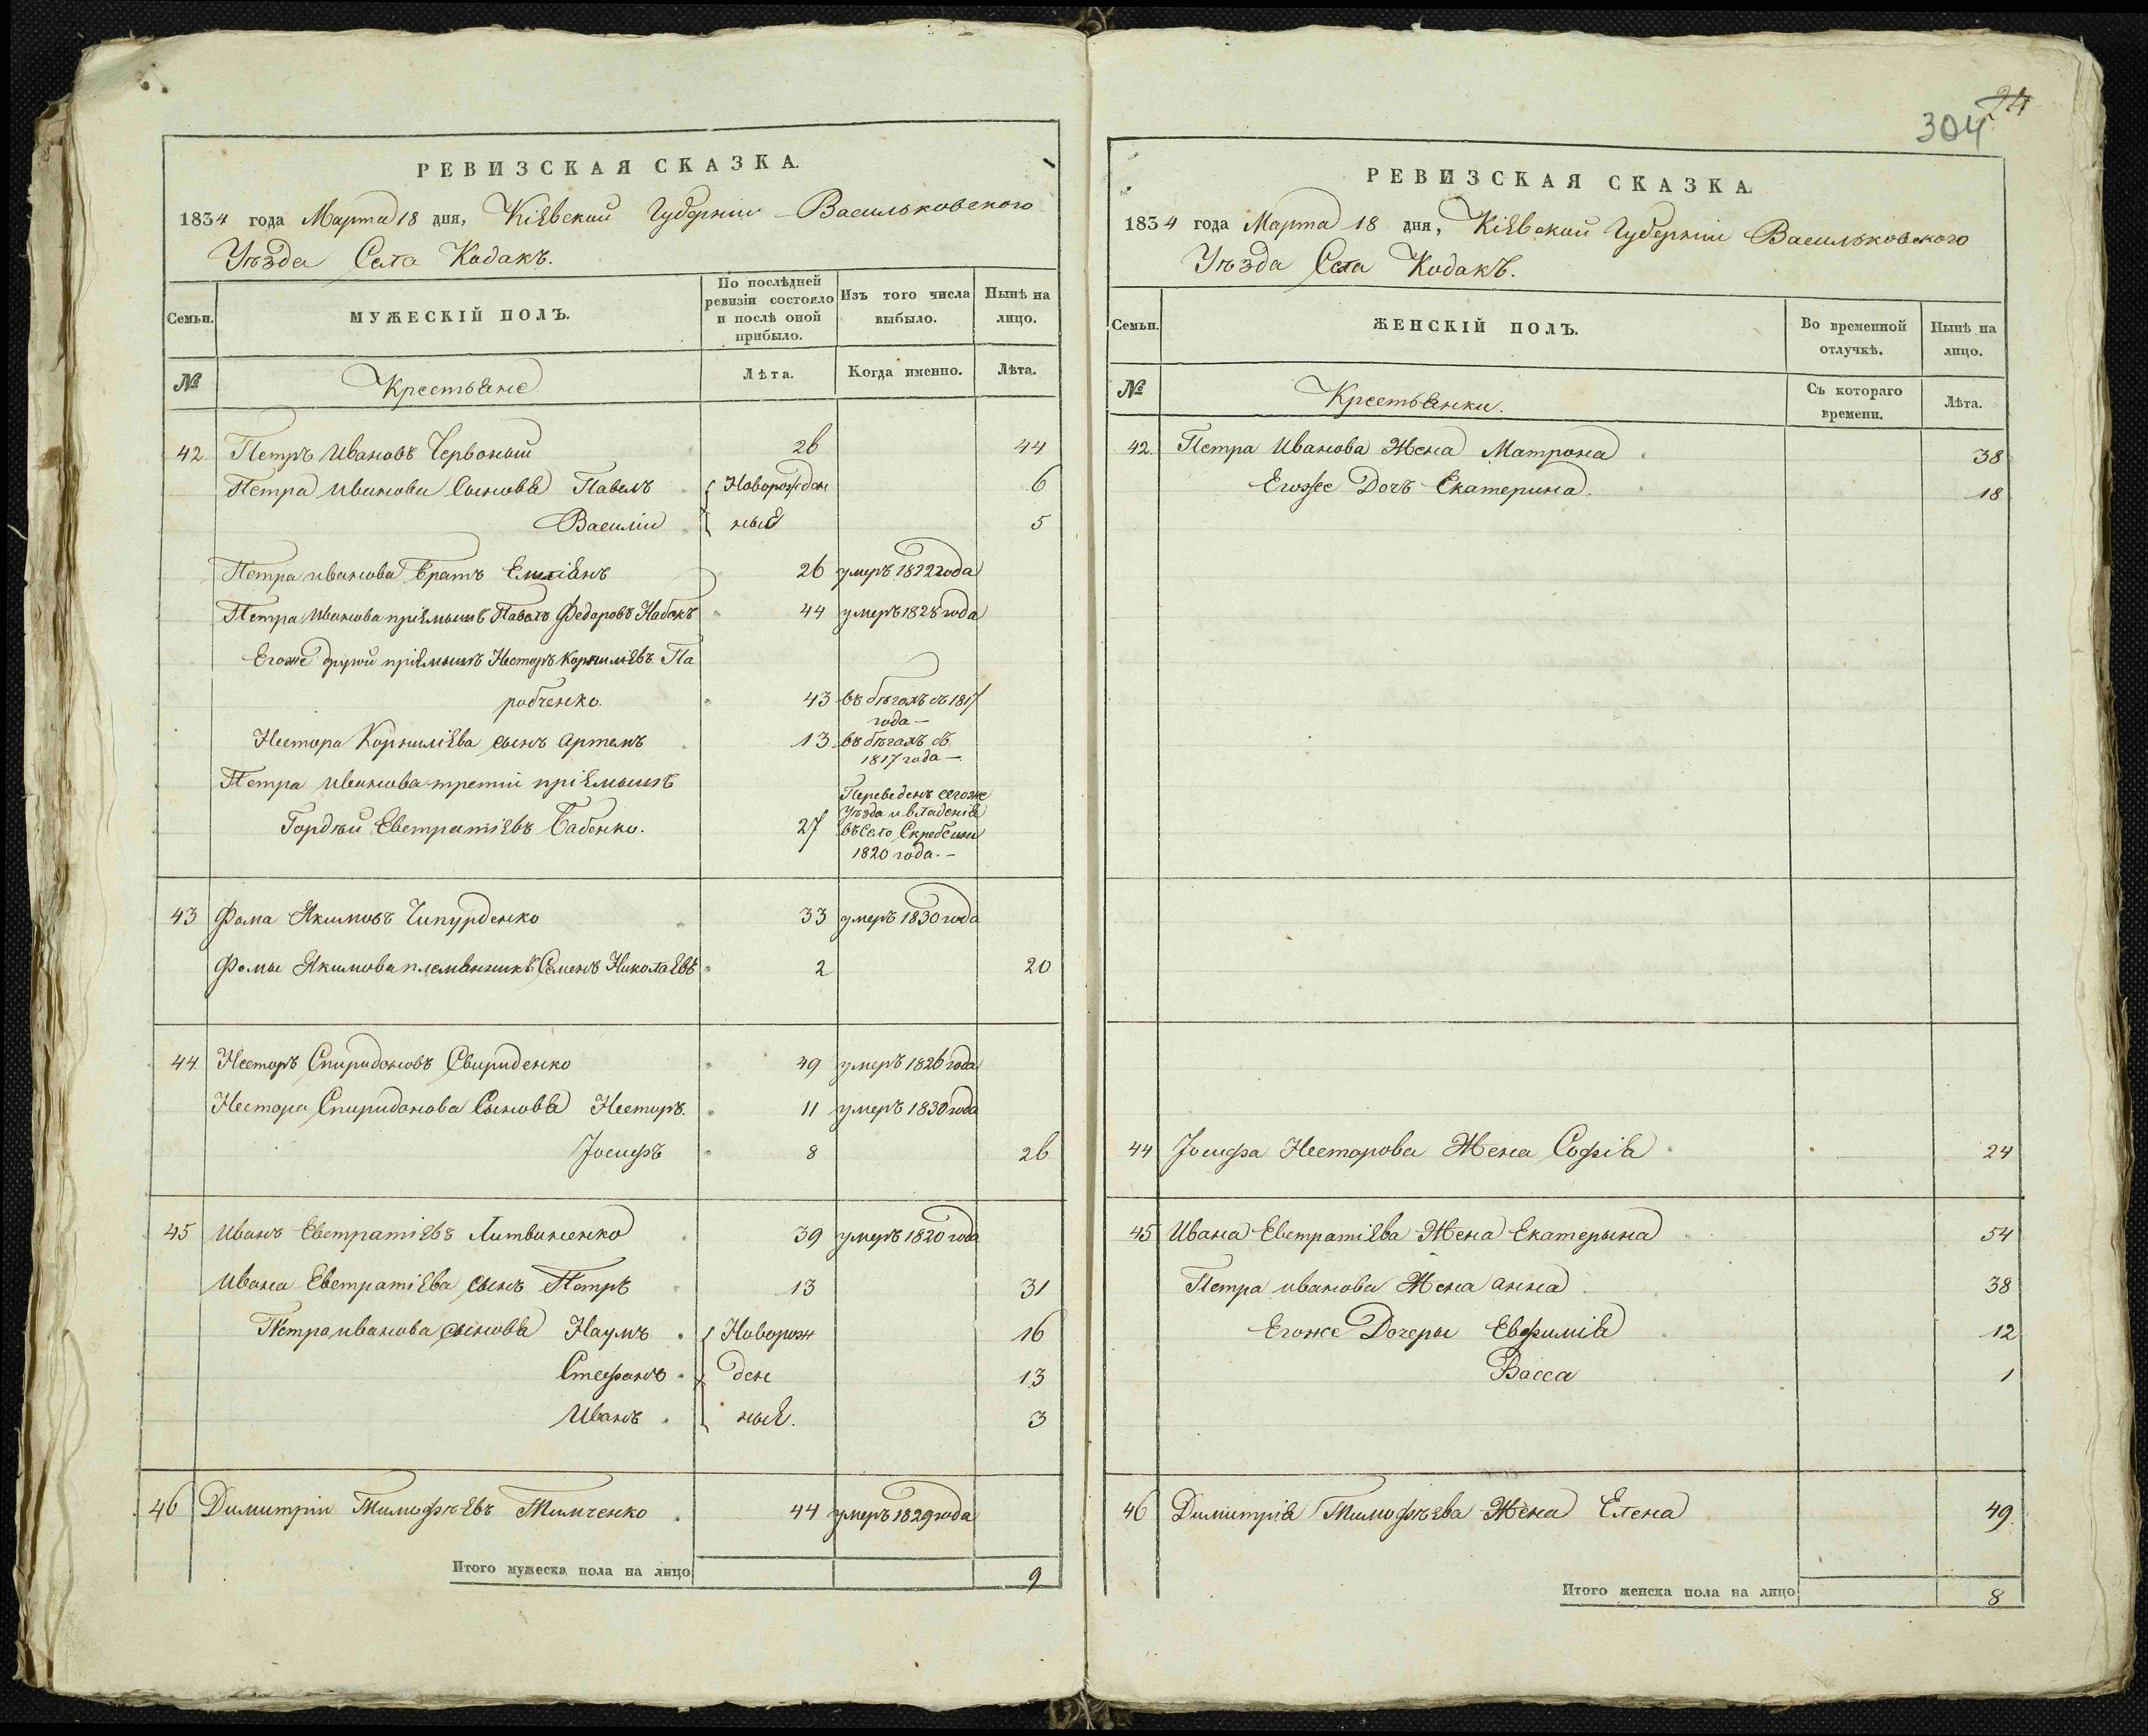 РЕВИЗСКАЯ СКАЗКА.
1834 года Марта 18 дня, Кіевской Губерніи Васильковского
Уѣзда Села Кодакъ.
Семьи.
МУЖЕСКІЙ ПОЛЪ.
По послѣдней ревизіи состояло и послѣ оной прибыло.
Изъ того числа выбыло.
Нынѣ на лицо.
№
Крестьяне
Лѣта.
Когда именно.
Лѣта.
42. Петръ Ивановъ Червоный 26 44
Петра Иванова Сыновья Павелъ Новорожден 6
Василіи ные 5
Петра иванова братъ Емиліянъ 26 умеръ 1822 года
Петра Иванова пріемышъ Павелъ Федоровъ Набокъ 44 умеръ 1828 года
Егоже другой пріемышъ Несторъ Корниліевъ Па
робченко. 43 въ бѣгахъ съ 1817 года
Нестора Корниліева сынъ Артемъ 13 въ бѣгахъ съ 1817 года
Петра Иванова третій пріемышъ
Гордѣй Евстратіевъ Бабенко. 27 Переведенъ сегоже
Уѣзда и владенія
въ Село Скребеши
1820 года.
43 Фома Якимовъ Чипурденко 33 умеръ 1830 года
Фомы Якимова племянникъ Семенъ Николаевъ 2 20
44. Несторъ Спиридоновъ Свириденко 49 умеръ 1826 года
Нестора Спиридонова Сыновья Несторъ. 11 умеръ 1830 года
Іосифъ 8 26
45 Иванъ Евстратіевъ Литвиненко 39 умеръ 1820 года
Ивана Евстратіева сынъ Петръ 13 31
Петра иванова сыновья Наумъ Новорож 16
Стефанъ ден 13
Иванъ ные. 3
46 Димитріи Тимофѣевъ Тимченко 44 умеръ 1829 года
Итого мужеска пола на лицо 9
24
304
РЕВИЗСКАЯ СКАЗКА.
1834 года Марта 18 дня, Кіевской Губерніи Васильковского
Уѣзда Села Кодакъ.
Семьи.
ЖЕНСКІЙ ПОЛЪ.
Во временной отлучкѣ.
Нынѣ на лицо.
№
Крестьянки.
Съ котораго времени.
Лѣта.
42. Петра Иванова Жена Матрона 38
Егоже Дочъ Екатерина. 18
44 Іосифа Несторова Жена Софія 24
45 Ивана Евстратіева Жена Екатерына 54
Петра иванова Жена анна 38
Егоже Дочеры Евфимія 12
Васса 1
46 Димитрія Тимофѣева Жена Елена 49
Итого женска пола на лицо 8